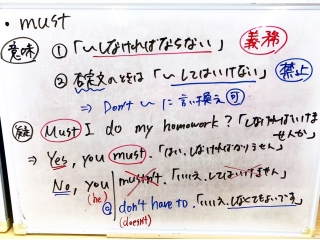 ・must
意味 ① 「〜しなければならない」 義務
② 否定文のときは「〜してはいけない」 禁止
⇒ Don't 〜 に言い換え可
Must I do my homework? 「しなければいけませんか」
⇒ Yes, you must. 「はい、しなければなりません」
No, you mustn't. 「いいえ、してはいけません」
(he)
don't have to. 「いいえ、しなくてもよいです」
(doesn't)